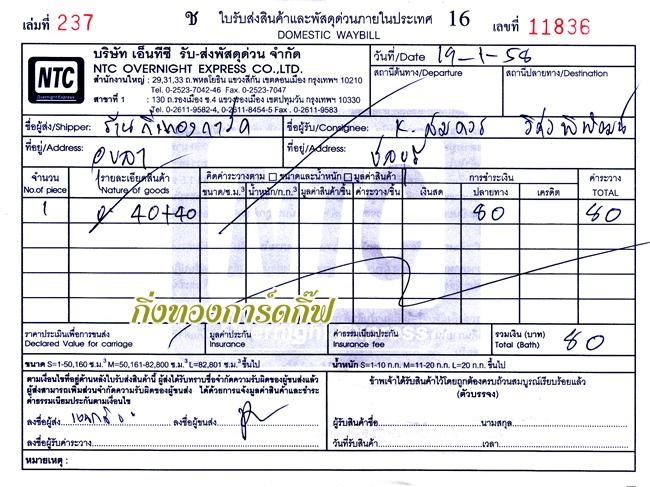 เล่มที่ 237 ช ใบรับส่งสินค้าและพัสดุด่วนภายในประเทศ 16 เลขที่ 11836
DOMESTIC WAYBILL
NTC
Overnight Express
บริษัท เอ็นทีซี รับ-ส่งพัสดุด่วน จำกัด
NTC OVERNIGHT EXPRESS CO.,LTD.
สำนักงานใหญ่ : 29,31,33 ถ.พหลโยธิน แขวงสีกัน เขตดอนเมือง กรุงเทพฯ 10210
Tel. 0-2523-7042-46 Fax. 0-2523-7047
สาขาที่ 1 : 130 ถ.รองเมือง ซ.4 แขวงรองเมือง เขตปทุมวัน กรุงเทพฯ 10330
Tel. 0-2611-9582-4, 0-2611-8454-5 Fax. 0-2611-9583
วันที่/Date 19-1-58
สถานีต้นทาง/Departure สถานีปลายทาง/Destination
ชื่อผู้ส่ง/Shipper: ร้านกิ่งทองการ์ด ชื่อผู้รับ/Consignee: K. สมควร
ที่อยู่/Address: ที่อยู่/Address: ชลบุรี
จำนวน รายละเอียดสินค้า คิดค่าระวางตาม ขนาดและน้ำหนัก มูลค่าสินค้า การชำระเงิน ค่าระวาง
No.of piece Nature of goods ขนาด/ซ.ม.³ น้ำหนัก/ก.ก.³ มูลค่าสินค้า/ชิ้น ค่าระวาง/ชิ้น เงินสด ปลายทาง เครดิต TOTAL
1 40+40 80 80
กิ่งทองการ์ดกิ๊ฟ
ราคาประเมินเพื่อการขนส่ง มูลค่าประกัน ค่าธรรมเนียมประกัน รวมเงิน (บาท) 80
Declared Value for carriage Insurance Insurance fee Total (Bath)
ขนาด S=1-50,160 ซ.ม.³ M=50,161-82,800 ซ.ม.³ L=82,801 ซ.ม.³ขึ้นไป น้ำหนัก S=1-10 ก.ก. M=11-20 ก.ก. L=20 ก.ก. ขึ้นไป
ตามเงื่อนไขที่อยู่ด้านหลังใบรับส่งสินค้านี้ ผู้ส่งได้รับทราบข้อจำกัดความรับผิดของผู้ขนส่งแล้ว
ผู้ส่งสามารถเพิ่มส่วนจำกัดความรับผิดของผู้ขนส่ง ได้ด้วยการแจ้งมูลค่าสินค้าและชำระ
ค่าธรรมเนียมประกันตามเงื่อนไข
ข้าพเจ้าได้รับสินค้าไว้โดยถูกต้องครบถ้วนสมบูรณ์เรียบร้อยแล้ว
(ตัวบรรจง)
ลงชื่อผู้ส่ง ลงชื่อผู้ขนส่ง
ผู้รับสินค้าชื่อ นามสกุล
ลงชื่อผู้รับค่าระวาง
วันที่รับสินค้า เวลา
หมายเหตุ :